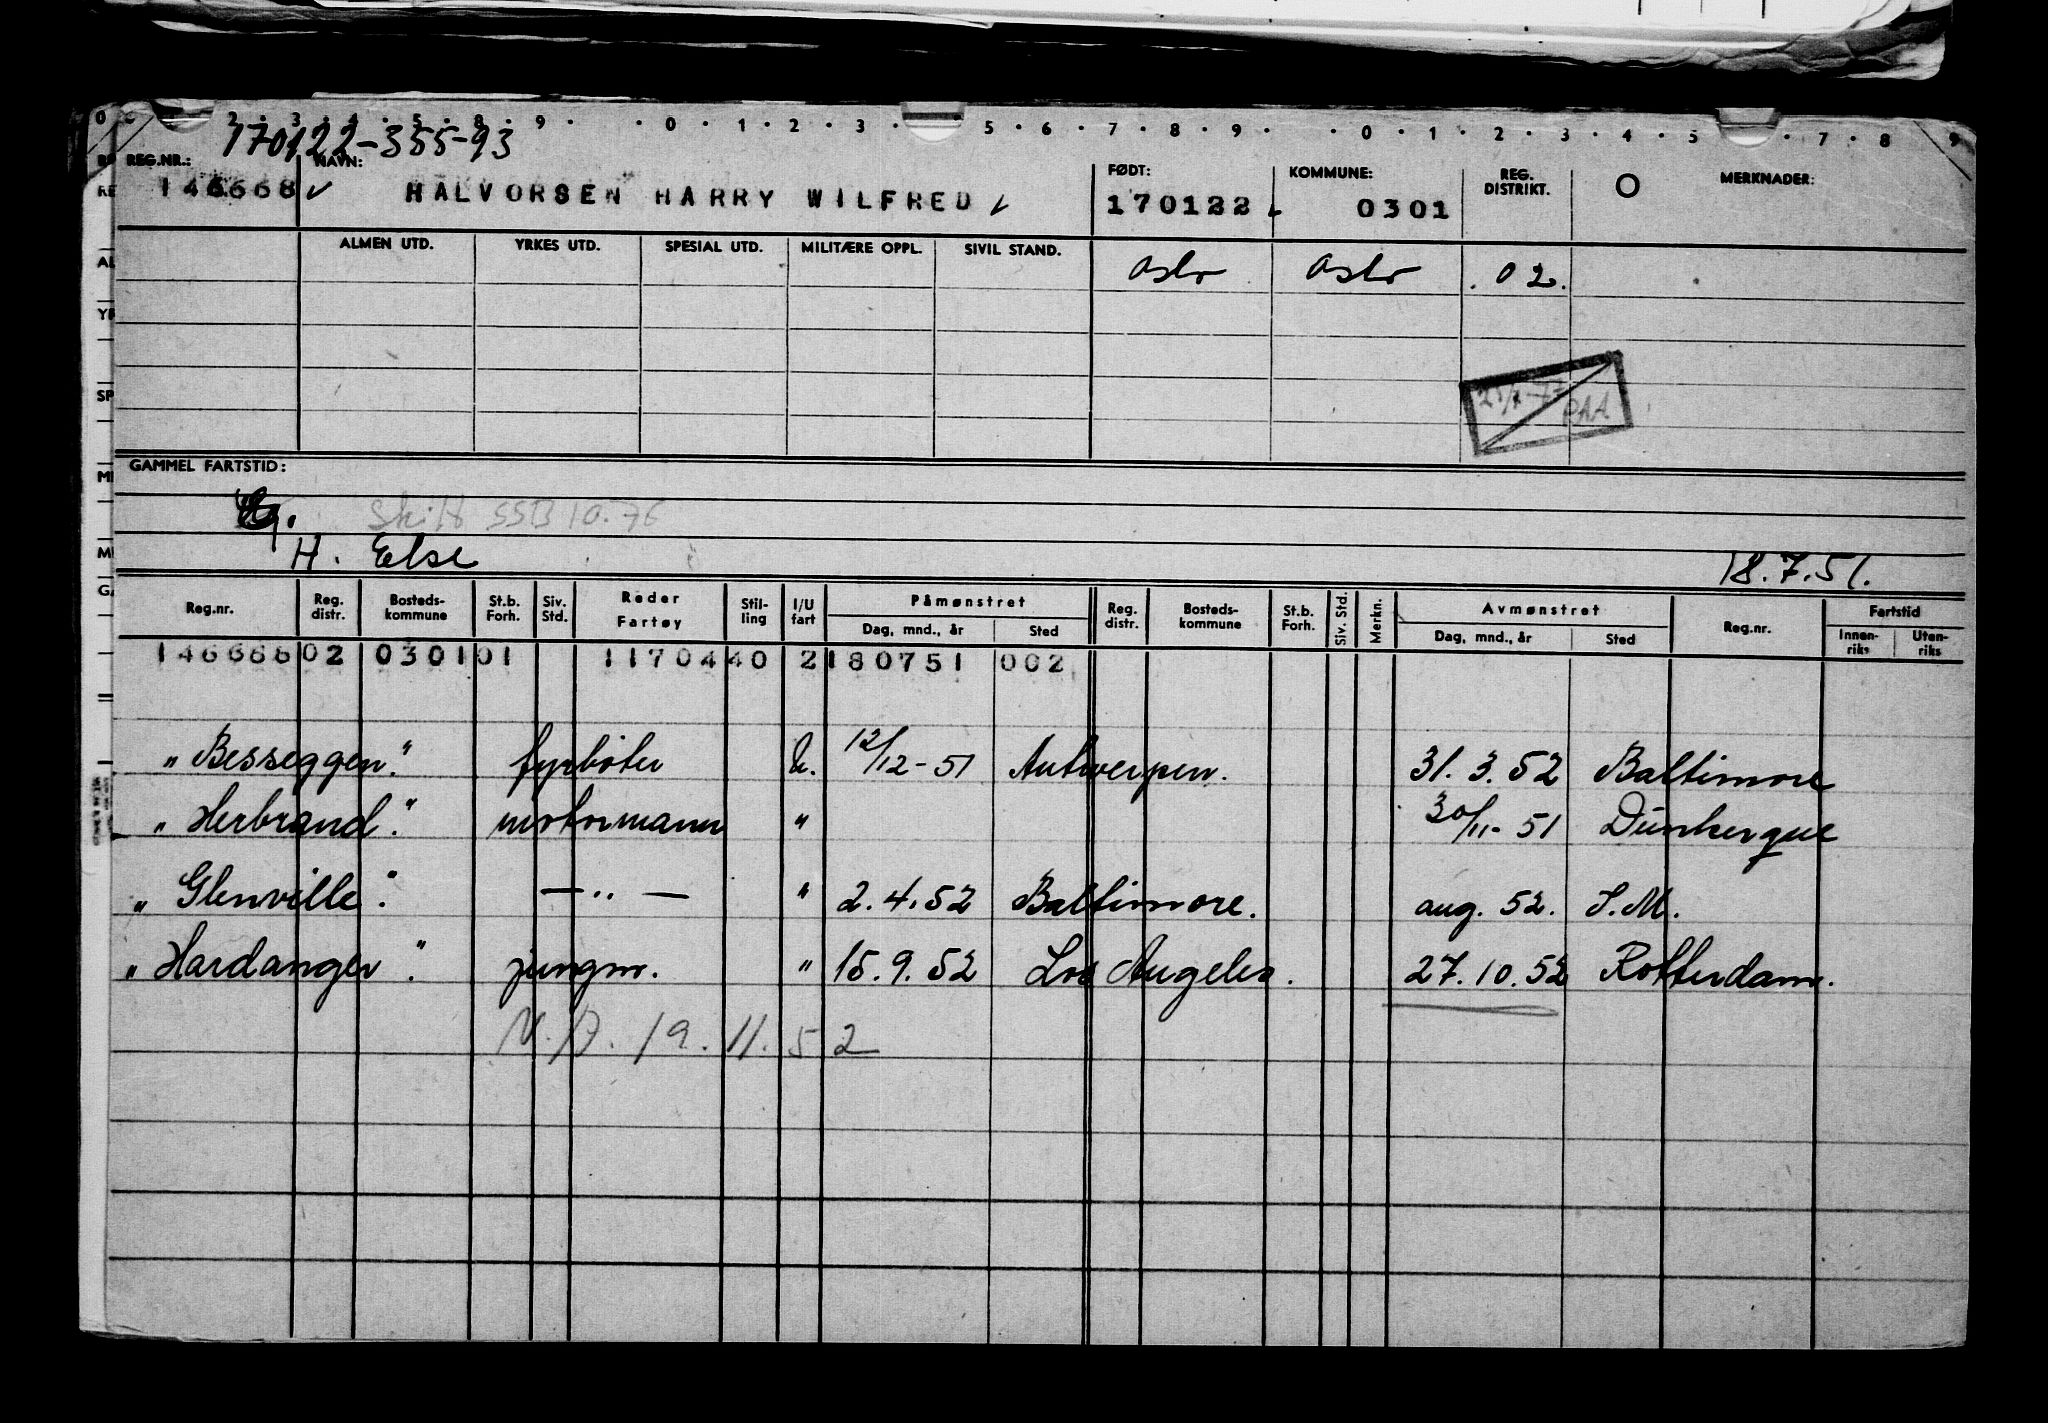 170122-355-93
REG.NR.: NAVN: FØDT: KOMMUNE: REG. DISTRIKT. MERKNADER:
146668 HALVORSEN HARRY WILFRED 170122 0301
ALMEN UTD. YRKES UTD. SPESIAL UTD. MILITÆRE OPPL. SIVIL STAND. Oslo Oslo 02.
PAA
GAMMEL FARTSTID:
Skift SSB 10.76
H. Else 18.7.51.
Reg.nr. Reg. distr. Bosteds- kommune St.b. Forh. Siv. Std. Reder Fartøy Stil- ling I/U fart Påmønstret Dag, mnd., år Sted Reg. distr. Bosteds- kommune St.b. Forh. Siv. Std. Merkn. Avmønstret Dag, mnd., år Sted Reg.nr. Fartstid Innen- riks Uten- riks
146668 02 0301 01 11704 40 2 180751 002
"Besseggen" fyrbøter U. 12/12-51 Antwerpen. 31.3.52 Baltimore
"Herbrand" motormann " 30/11-51 Dünkerque
"Glenville" — " — " 2.4.52 Baltimore. aug. 52. S.M.
"Hardanger" jungm. " 15.9.52 Los Angeles. 27.10.52 Rotterdam.
19.11.52